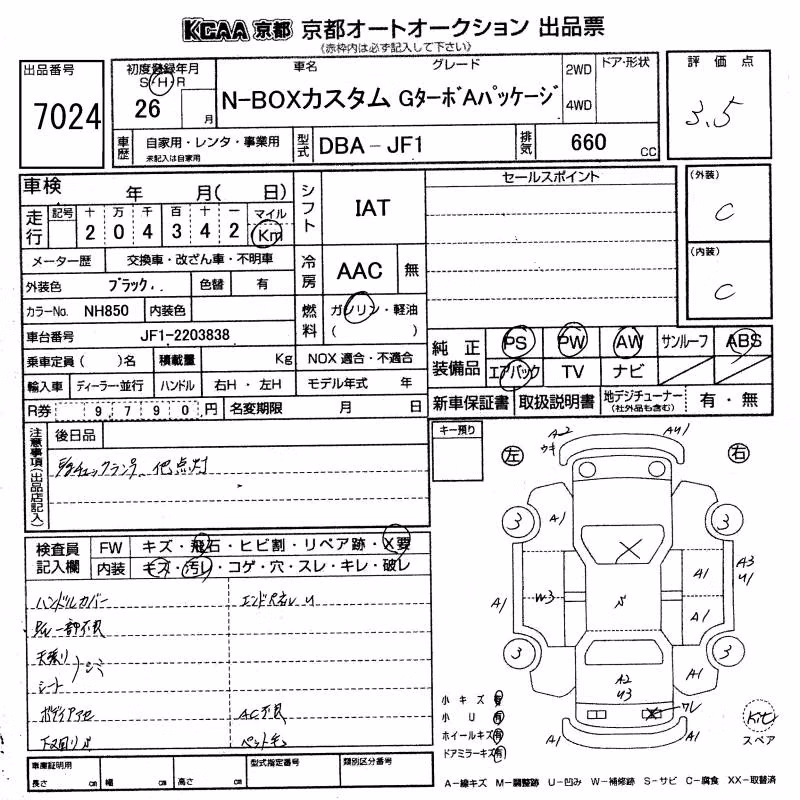 KCAA 京都 京都オートオークション 出品票
(赤枠内は必ず記入して下さい)
出品番号
7024
初度登録年月
S H R
26 月
車名 グレード
N-BOXカスタム GターボAパッケージ
2WD
4WD
ドア・形状
評価点
3.5
車歴
自家用・レンタ・事業用
未記入は自家用
型式
DBA-JF1
排気
660 CC
車検 年 月( 日)
走行
記号 十 万 千 百 十 一 マイル
2 0 4 3 4 2 Km
メーター歴 交換車・改ざん車・不明車
外装色 ブラック.. 色替 有
カラーNo. NH850 内装色
車台番号 JF1-2203838
乗車定員( )名 積載量 Kg NOX 適合・不適合
輸入車 ディーラー・並行 ハンドル 右H・左H モデル年式 年
R券 9,790,円 名変期限 月 日
シフト
IAT
冷房
AAC 無
燃料
ガソリン・軽油
( )
セールスポイント
(外装)
C
(内装)
C
純正装備品
PS PW AW サンルーフ ABS
エアバック TV ナビ
新車保証書 取扱説明書 地デジチューナー(社外品も含む) 有・無
注意事項(出品店記入)
後日品
キー預り
検査員記入欄
FW キズ・飛石・ヒビ割・リペア跡・X要
内装 キズ・汚レ・コゲ・穴・スレ・キレ・破レ
ハンドルカバー
天張り
シート
シミ
AC不良
左 右
A2
ウキ
AU1
3 A1 3
A1 W3 A1 A3
U1
A1
3 A1 3
A2
U3
ワレ
A1 A1
小キズ 有
小U 有
ホイールキズ 有
ドアミラーキズ 有
Kit
スペア
車庫証明用
長さ cm 幅 cm 高さ cm
型式指定番号
類別区分番号
A-線キズ M-調整跡 U-凹み W-補修跡 S-サビ C-腐食 XX-取替済